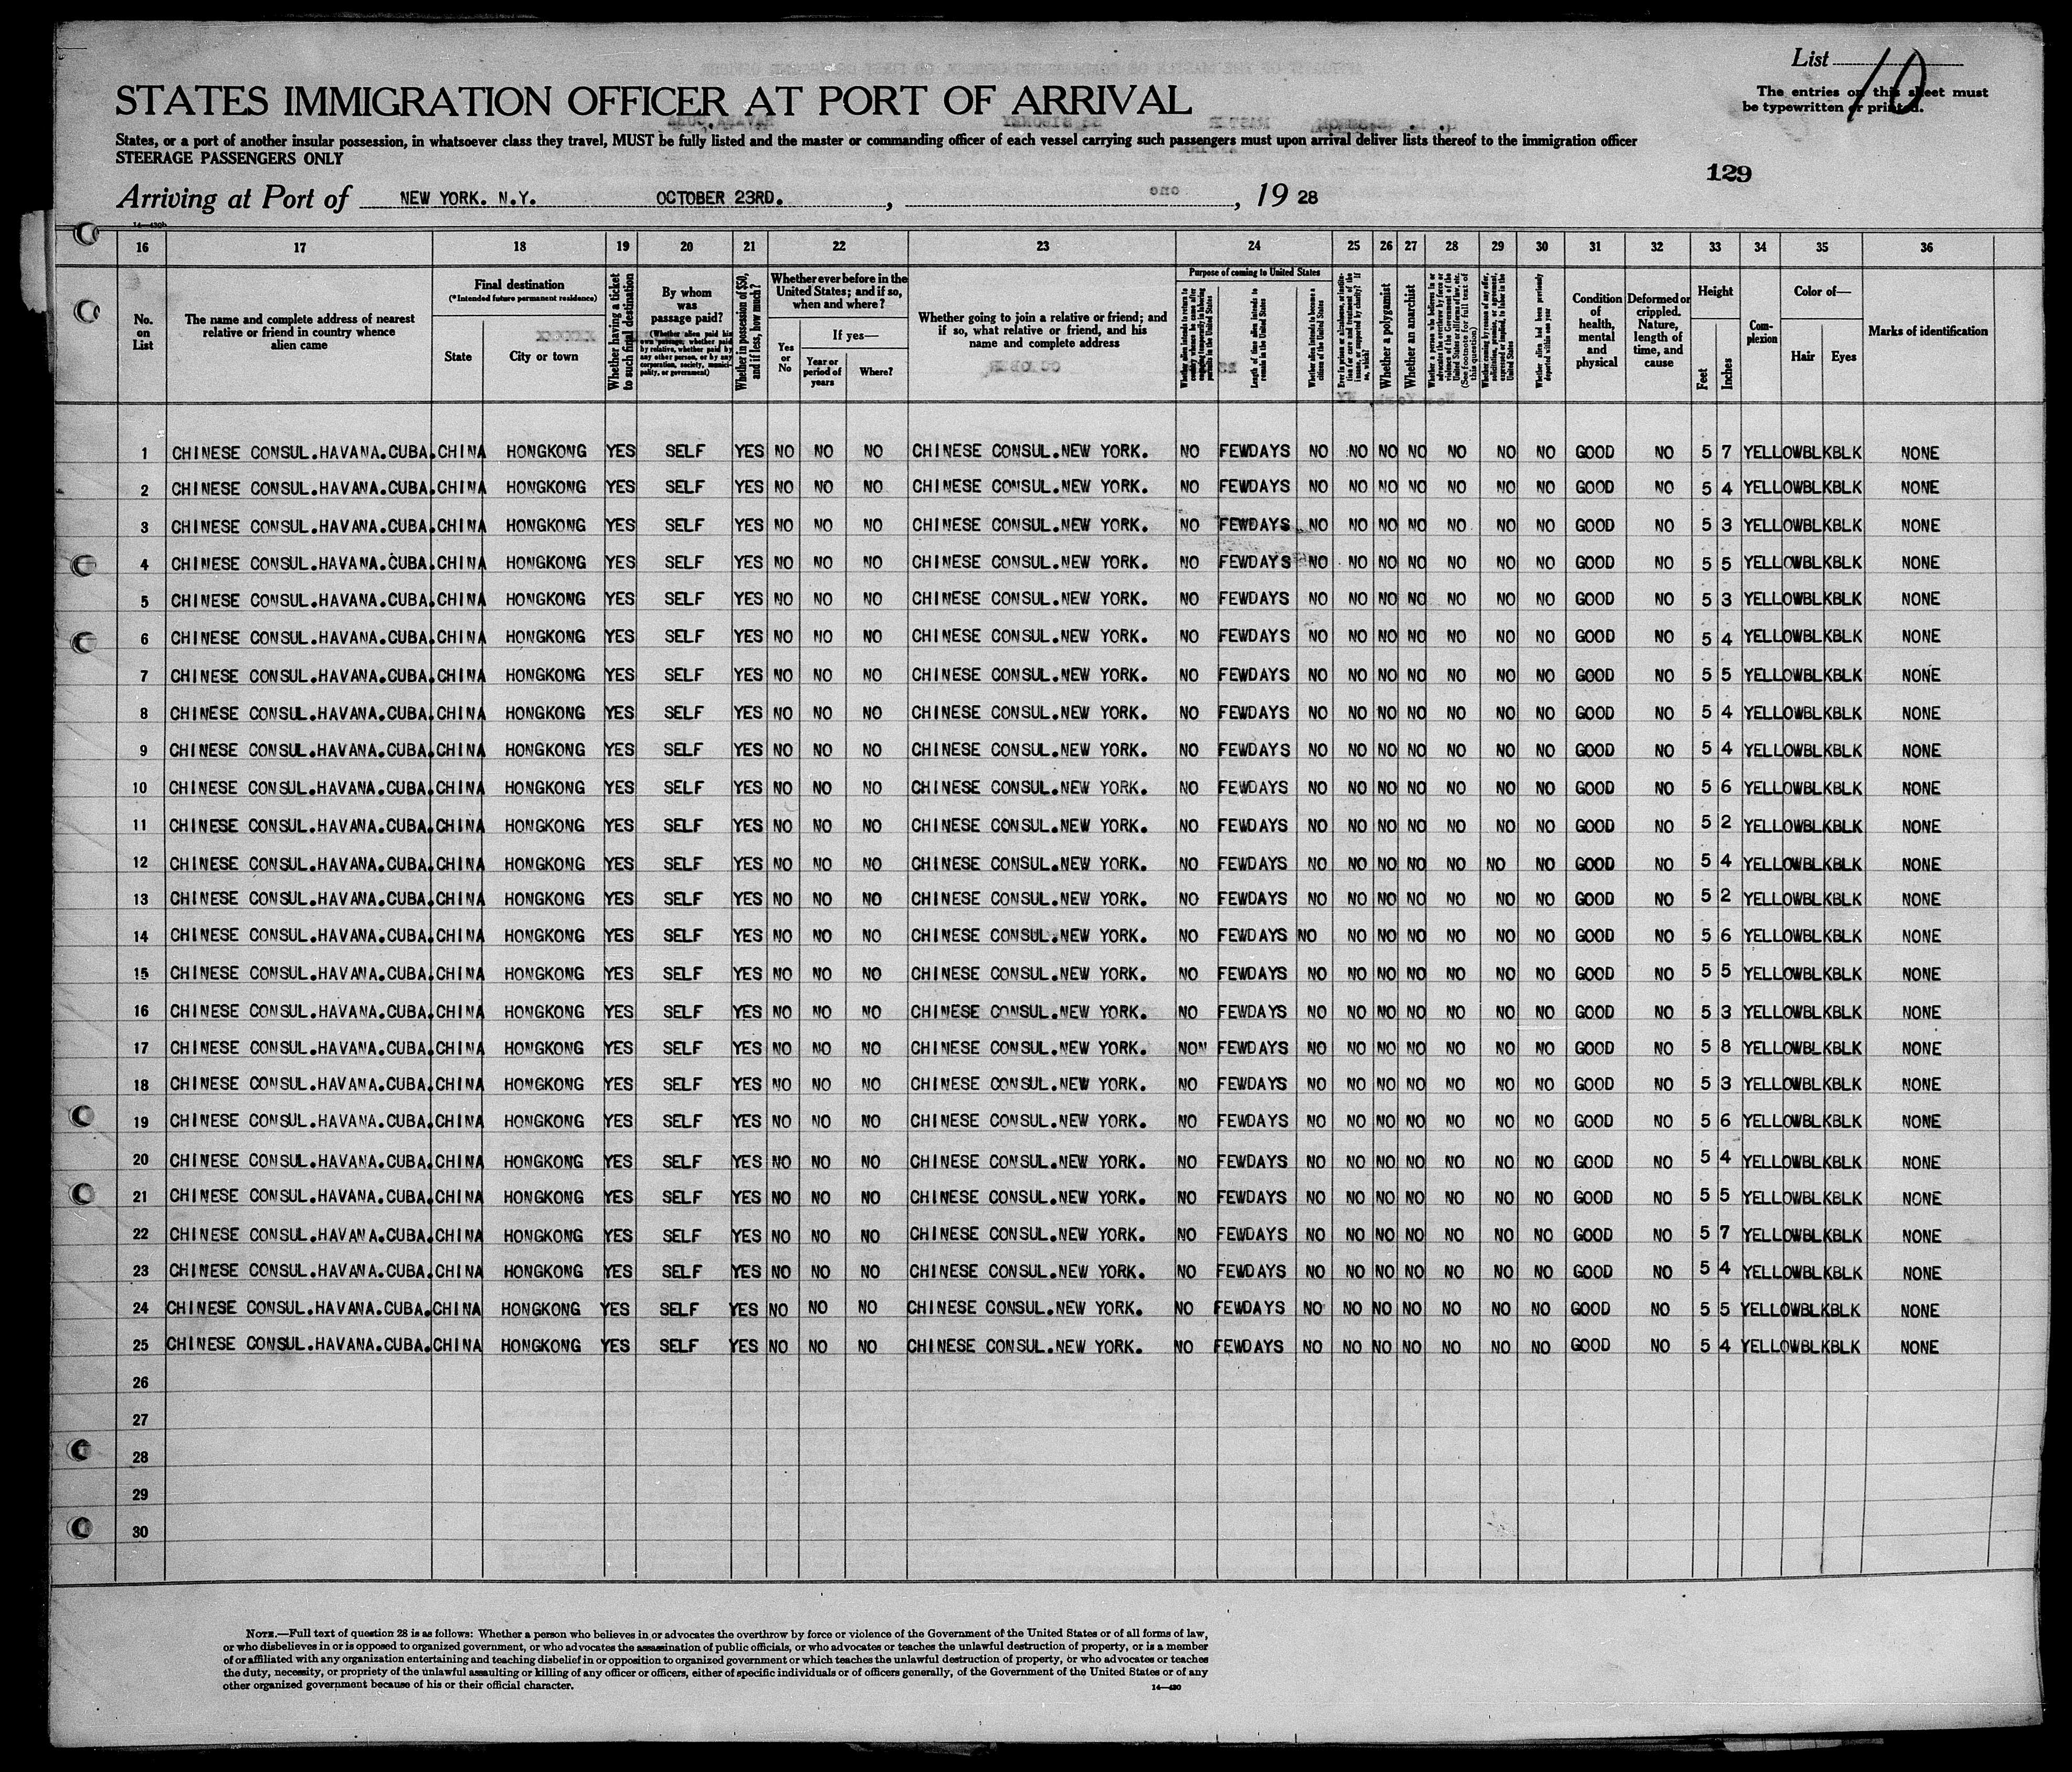 List 10
The entries on this sheet must
be typewritten or printed.
STATES IMMIGRATION OFFICER AT PORT OF ARRIVAL
States, or a port of another insular possession, in whatsoever class they travel, MUST be fully listed and the master or commanding officer of each vessel carrying such passengers must upon arrival deliver lists thereof to the immigration officer
STEERAGE PASSENGERS ONLY
129
Arriving at Port of NEW YORK. N.Y. OCTOBER 23RD. , , 19 28
14—430b
16 17 18 19 20 21 22 23 24 25 26 27 28 29 30 31 32 33 34 35 36
No. on List
The name and complete address of nearest relative or friend in country whence alien came
Final destination
(*Intended future permanent residence)
State
City or town
Whether having a ticket to such final destination
By whom was passage paid?
(Whether alien paid his own passage, whether paid by relative, whether paid by any other person, or by any corporation, society, municipality, or government)
Whether in possession of $50, and if less, how much?
Whether ever before in the United States; and if so, when and where?
Yes or No
If yes—
Year or period of years
Where?
Whether going to join a relative or friend; and if so, what relative or friend, and his name and complete address
Purpose of coming to United States
Length of time alien intends to remain in the United States
Whether alien intends to become a citizen of the United States
Whether a polygamist
Whether an anarchist
Whether alien had been previously deported within one year
Condition of health, mental and physical
Deformed or crippled. Nature, length of time, and cause
Height
Feet
Inches
Complexion
Color of—
Hair
Eyes
Marks of identification
1 CHINESE CONSUL.HAVANA.CUBA. CHINA HONGKONG YES SELF YES NO NO NO CHINESE CONSUL.NEW YORK. NO FEWDAYS NO NO NO NO NO NO NO GOOD NO 5 7 YELLOWBLKBLK NONE
2 CHINESE CONSUL.HAVANA.CUBA. CHINA HONGKONG YES SELF YES NO NO NO CHINESE CONSUL.NEW YORK. NO FEWDAYS NO NO NO NO NO NO NO GOOD NO 5 4 YELLOWBLKBLK NONE
3 CHINESE CONSUL.HAVANA.CUBA. CHINA HONGKONG YES SELF YES NO NO NO CHINESE CONSUL.NEW YORK. NO FEWDAYS NO NO NO NO NO NO NO GOOD NO 5 3 YELLOWBLKBLK NONE
4 CHINESE CONSUL.HAVANA.CUBA. CHINA HONGKONG YES SELF YES NO NO NO CHINESE CONSUL.NEW YORK. NO FEWDAYS NO NO NO NO NO NO NO GOOD NO 5 5 YELLOWBLKBLK NONE
5 CHINESE CONSUL.HAVANA.CUBA. CHINA HONGKONG YES SELF YES NO NO NO CHINESE CONSUL.NEW YORK. NO FEWDAYS NO NO NO NO NO NO NO GOOD NO 5 3 YELLOWBLKBLK NONE
6 CHINESE CONSUL.HAVANA.CUBA. CHINA HONGKONG YES SELF YES NO NO NO CHINESE CONSUL.NEW YORK. NO FEWDAYS NO NO NO NO NO NO NO GOOD NO 5 4 YELLOWBLKBLK NONE
7 CHINESE CONSUL.HAVANA.CUBA. CHINA HONGKONG YES SELF YES NO NO NO CHINESE CONSUL.NEW YORK. NO FEWDAYS NO NO NO NO NO NO NO GOOD NO 5 5 YELLOWBLKBLK NONE
8 CHINESE CONSUL.HAVANA.CUBA. CHINA HONGKONG YES SELF YES NO NO NO CHINESE CONSUL.NEW YORK. NO FEWDAYS NO NO NO NO NO NO NO GOOD NO 5 4 YELLOWBLKBLK NONE
9 CHINESE CONSUL.HAVANA.CUBA. CHINA HONGKONG YES SELF YES NO NO NO CHINESE CONSUL.NEW YORK. NO FEWDAYS NO NO NO NO NO NO NO GOOD NO 5 4 YELLOWBLKBLK NONE
10 CHINESE CONSUL.HAVANA.CUBA. CHINA HONGKONG YES SELF YES NO NO NO CHINESE CONSUL.NEW YORK. NO FEWDAYS NO NO NO NO NO NO NO GOOD NO 5 6 YELLOWBLKBLK NONE
11 CHINESE CONSUL.HAVANA.CUBA. CHINA HONGKONG YES SELF YES NO NO NO CHINESE CONSUL.NEW YORK. NO FEWDAYS NO NO NO NO NO NO NO GOOD NO 5 2 YELLOWBLKBLK NONE
12 CHINESE CONSUL.HAVANA.CUBA. CHINA HONGKONG YES SELF YES NO NO NO CHINESE CONSUL.NEW YORK. NO FEWDAYS NO NO NO NO NO NO NO GOOD NO 5 4 YELLOWBLKBLK NONE
13 CHINESE CONSUL.HAVANA.CUBA. CHINA HONGKONG YES SELF YES NO NO NO CHINESE CONSUL.NEW YORK. NO FEWDAYS NO NO NO NO NO NO NO GOOD NO 5 2 YELLOWBLKBLK NONE
14 CHINESE CONSUL.HAVANA.CUBA. CHINA HONGKONG YES SELF YES NO NO NO CHINESE CONSUL.NEW YORK. NO FEWDAYS NO NO NO NO NO NO NO GOOD NO 5 6 YELLOWBLKBLK NONE
15 CHINESE CONSUL.HAVANA.CUBA. CHINA HONGKONG YES SELF YES NO NO NO CHINESE CONSUL.NEW YORK. NO FEWDAYS NO NO NO NO NO NO NO GOOD NO 5 5 YELLOWBLKBLK NONE
16 CHINESE CONSUL.HAVANA.CUBA. CHINA HONGKONG YES SELF YES NO NO NO CHINESE CONSUL.NEW YORK. NO FEWDAYS NO NO NO NO NO NO NO GOOD NO 5 3 YELLOWBLKBLK NONE
17 CHINESE CONSUL.HAVANA.CUBA. CHINA HONGKONG YES SELF YES NO NO NO CHINESE CONSUL.NEW YORK. NON FEWDAYS NO NO NO NO NO NO NO GOOD NO 5 8 YELLOWBLKBLK NONE
18 CHINESE CONSUL.HAVANA.CUBA. CHINA HONGKONG YES SELF YES NO NO NO CHINESE CONSUL.NEW YORK. NO FEWDAYS NO NO NO NO NO NO NO GOOD NO 5 3 YELLOWBLKBLK NONE
19 CHINESE CONSUL.HAVANA.CUBA. CHINA HONGKONG YES SELF YES NO NO NO CHINESE CONSUL.NEW YORK. NO FEWDAYS NO NO NO NO NO NO NO GOOD NO 5 6 YELLOWBLKBLK NONE
20 CHINESE CONSUL.HAVANA.CUBA. CHINA HONGKONG YES SELF YES NO NO NO CHINESE CONSUL.NEW YORK. NO FEWDAYS NO NO NO NO NO NO NO GOOD NO 5 4 YELLOWBLKBLK NONE
21 CHINESE CONSUL.HAVANA.CUBA. CHINA HONGKONG YES SELF YES NO NO NO CHINESE CONSUL.NEW YORK. NO FEWDAYS NO NO NO NO NO NO NO GOOD NO 5 5 YELLOWBLKBLK NONE
22 CHINESE CONSUL.HAVANA.CUBA. CHINA HONGKONG YES SELF YES NO NO NO CHINESE CONSUL.NEW YORK. NO FEWDAYS NO NO NO NO NO NO NO GOOD NO 5 7 YELLOWBLKBLK NONE
23 CHINESE CONSUL.HAVANA.CUBA. CHINA HONGKONG YES SELF YES NO NO NO CHINESE CONSUL.NEW YORK. NO FEWDAYS NO NO NO NO NO NO NO GOOD NO 5 4 YELLOWBLKBLK NONE
24 CHINESE CONSUL.HAVANA.CUBA. CHINA HONGKONG YES SELF YES NO NO NO CHINESE CONSUL.NEW YORK. NO FEWDAYS NO NO NO NO NO NO NO GOOD NO 5 5 YELLOWBLKBLK NONE
25 CHINESE CONSUL.HAVANA.CUBA. CHINA HONGKONG YES SELF YES NO NO NO CHINESE CONSUL.NEW YORK. NO FEWDAYS NO NO NO NO NO NO NO GOOD NO 5 4 YELLOWBLKBLK NONE
26
27
28
29
30
NOTE.—Full text of question 28 is as follows: Whether a person who believes in or advocates the overthrow by force or violence of the Government of the United States or of all forms of law,
or who disbelieves in or is opposed to organized government, or who advocates the assassination of public officials, or who advocates or teaches the unlawful destruction of property, or is a member
of or affiliated with any organization entertaining and teaching disbelief in or opposition to organized government or which teaches the unlawful destruction of property, or who advocates or teaches
the duty, necessity, or propriety of the unlawful assaulting or killing of any officer or officers, either of specific individuals or of officers generally, of the Government of the United States or of any
other organized government because of his or their official character.
14—430